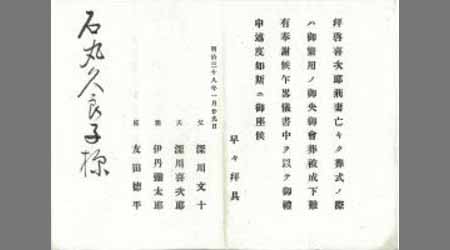 拝啓喜次郎病妻亡キタ葬式ノ際
ハ御繁用ノ御央御會葬被成下難
有奉謝候乍畧儀書中ヲ以テ御禮
申述度如斯ニ御座候
早々拝具
明治三十八年一月廿九日
父 深川文十
夫 深川喜次郎
伊丹彌太郎
友田德平
石丸久良子様